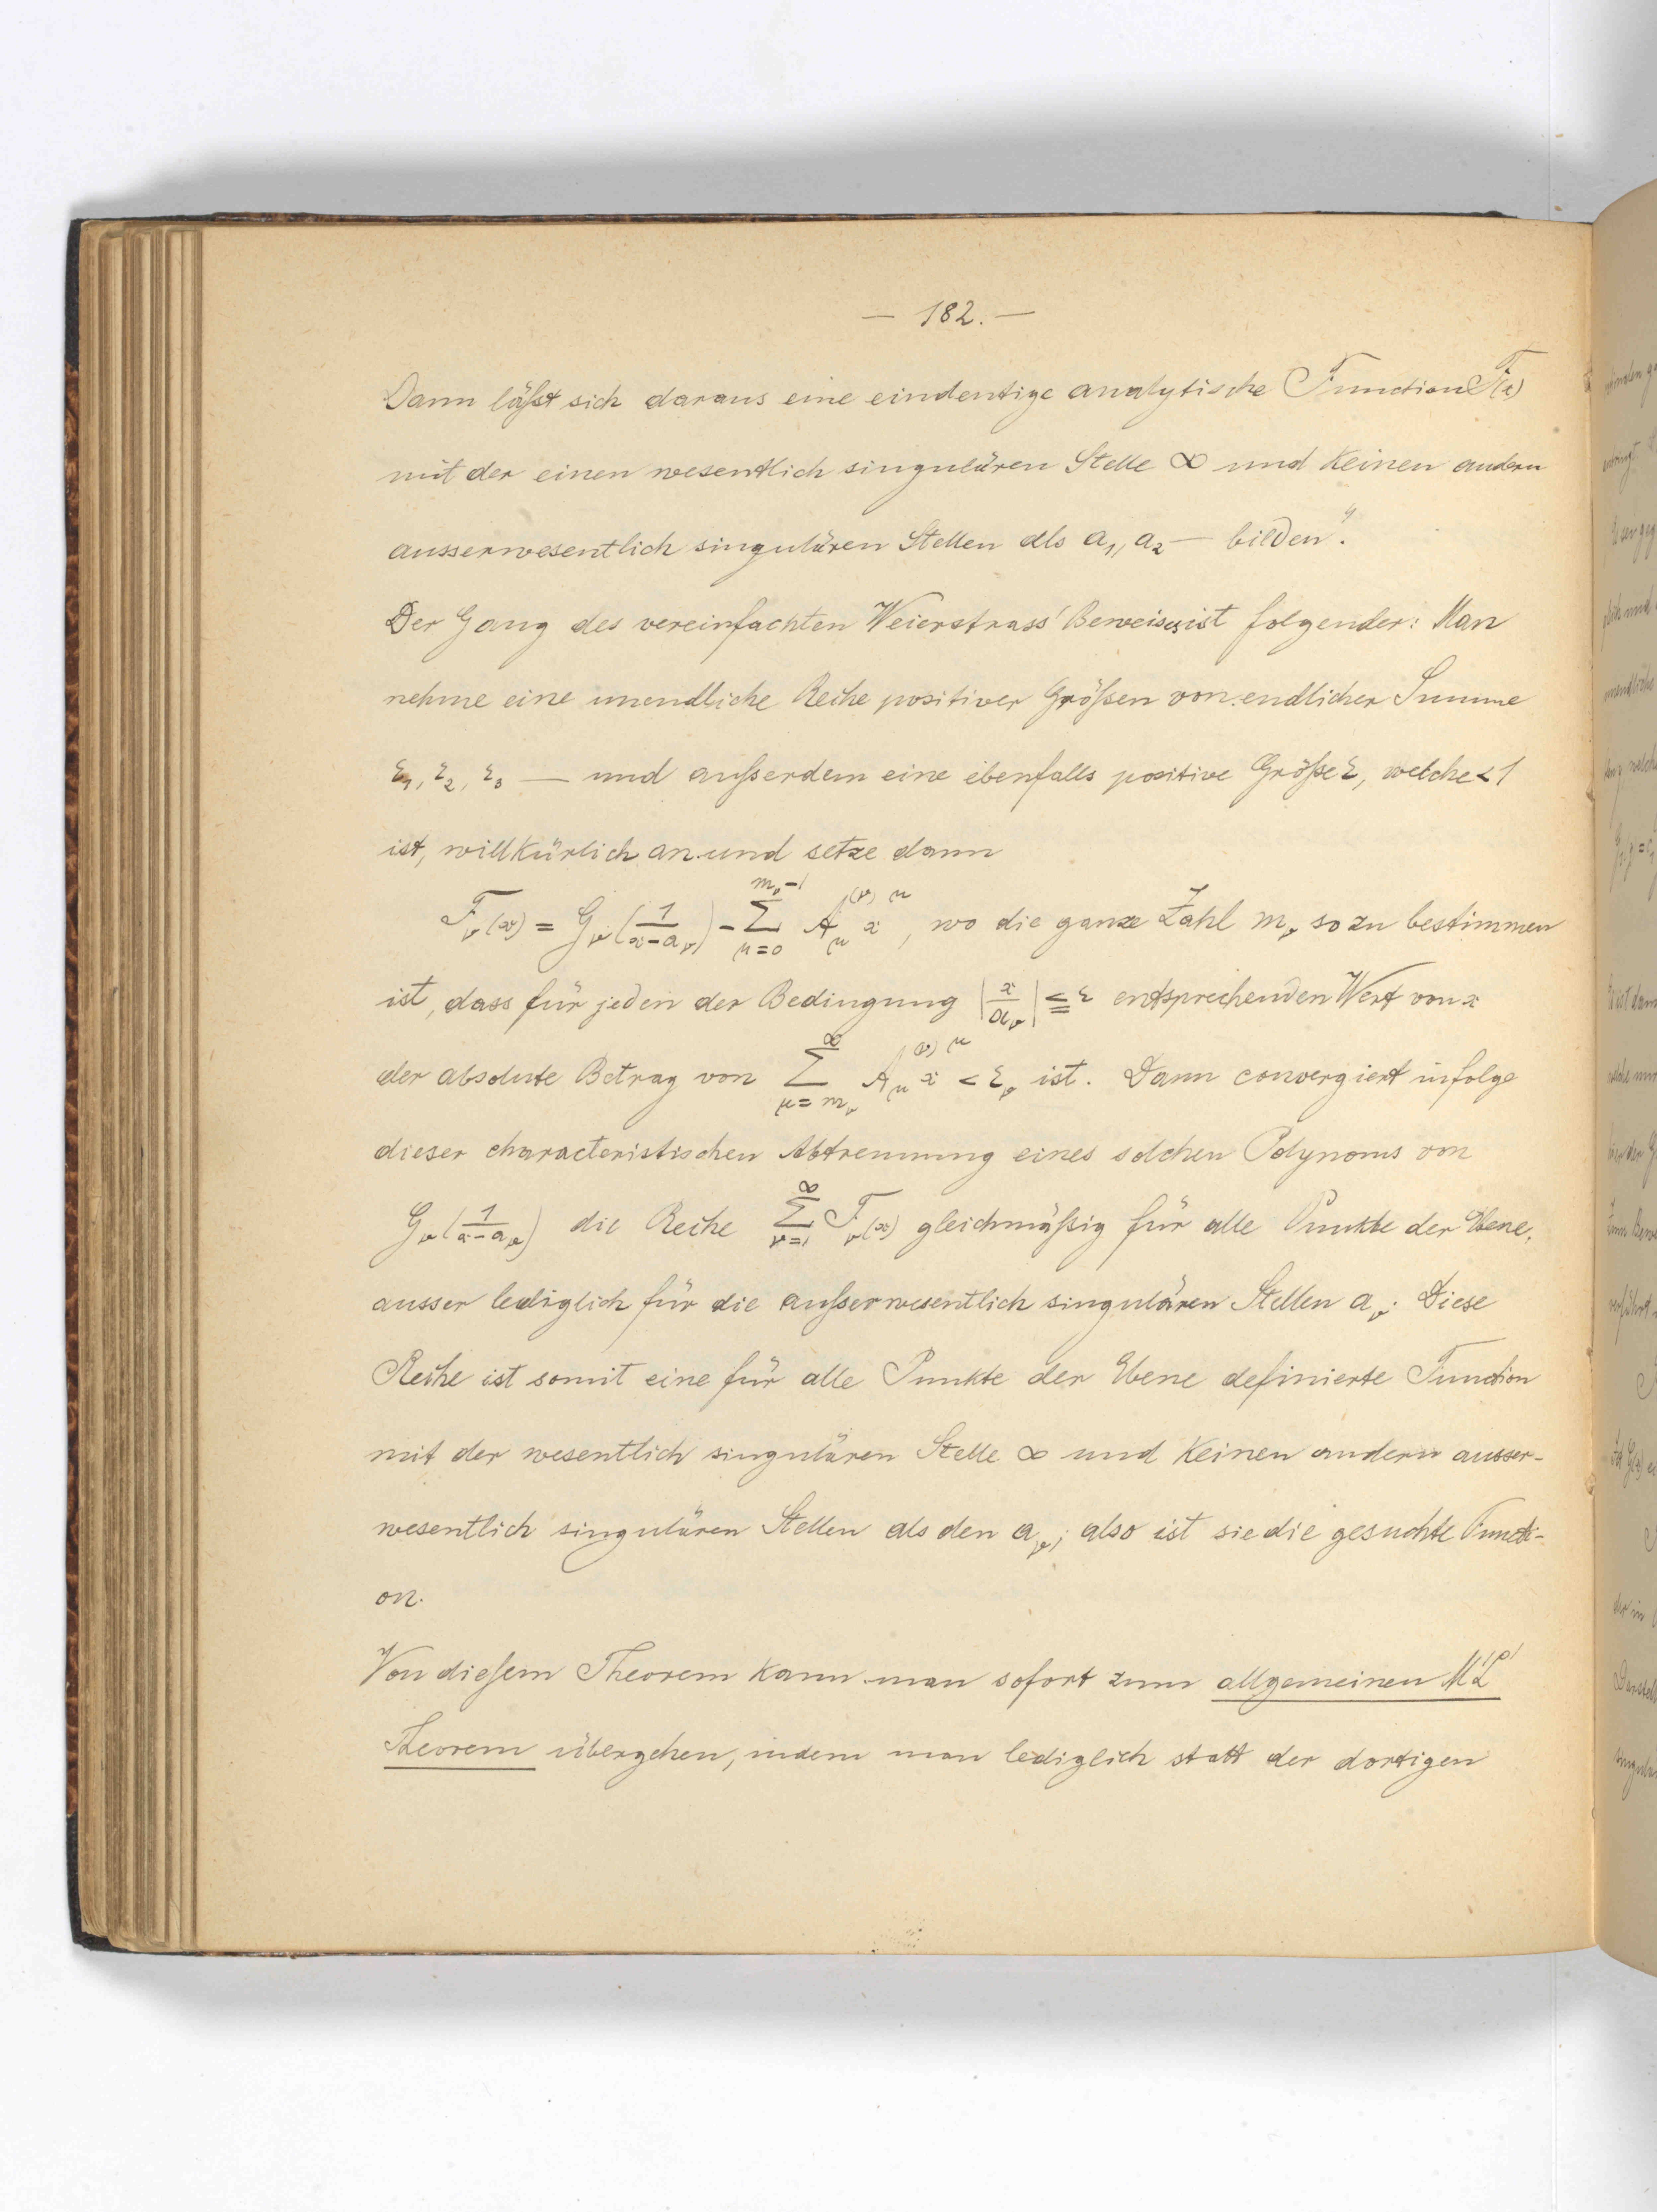 — 182. —
Dann läßt sich daraus eine eindeutige analytische Function F(x)
mit der einen wesentlich singulären Stelle ∞ und keinen andern
ausserwesentlich singulären Stellen als a₁, a₂ — bilden".
Der Gang des vereinfachten Weierstrass' Beweises ist folgender: Man
nehme eine unendliche Reihe positiver Größen von endlicher Summe
ε₁, ε₂, ε₃ — und außerdem eine ebenfalls positive Größe ε, welche < 1
ist, willkürlich an und setze dann
F_ν(x) = G_ν(1/(x-a_ν)) - Σ_{μ=0}^{m_ν-1} A_μ^{(ν)} x^μ, wo die ganze Zahl m_ν so zu bestimmen
ist, dass für jeden der Bedingung |x/a_ν| ≦ ε entsprechenden Wert von x
der absolute Betrag von Σ_{μ=m_ν}^{∞} A_μ^{(ν)} x^μ < ε_ν ist. Dann convergiert infolge
dieser characteristischen Abtrennung eines solchen Polynoms von
G_ν(1/(x-a_ν)) die Reihe Σ_{ν=1}^{∞} F_ν(x) gleichmäßig für alle Punkte der Ebene,
ausser lediglich für die außerwesentlich singulären Stellen a_ν. Diese
Reihe ist somit eine für alle Punkte der Ebene definierte Function
mit der wesentlich singulären Stelle ∞ und keinen andern ausser-
wesentlich singulären Stellen als den a_ν; also ist sie die gesuchte Functi-
on.
Von dießem Theorem kann man sofort zum allgemeinen M'L'
Theorem übergehen, indem man lediglich statt der dortigen